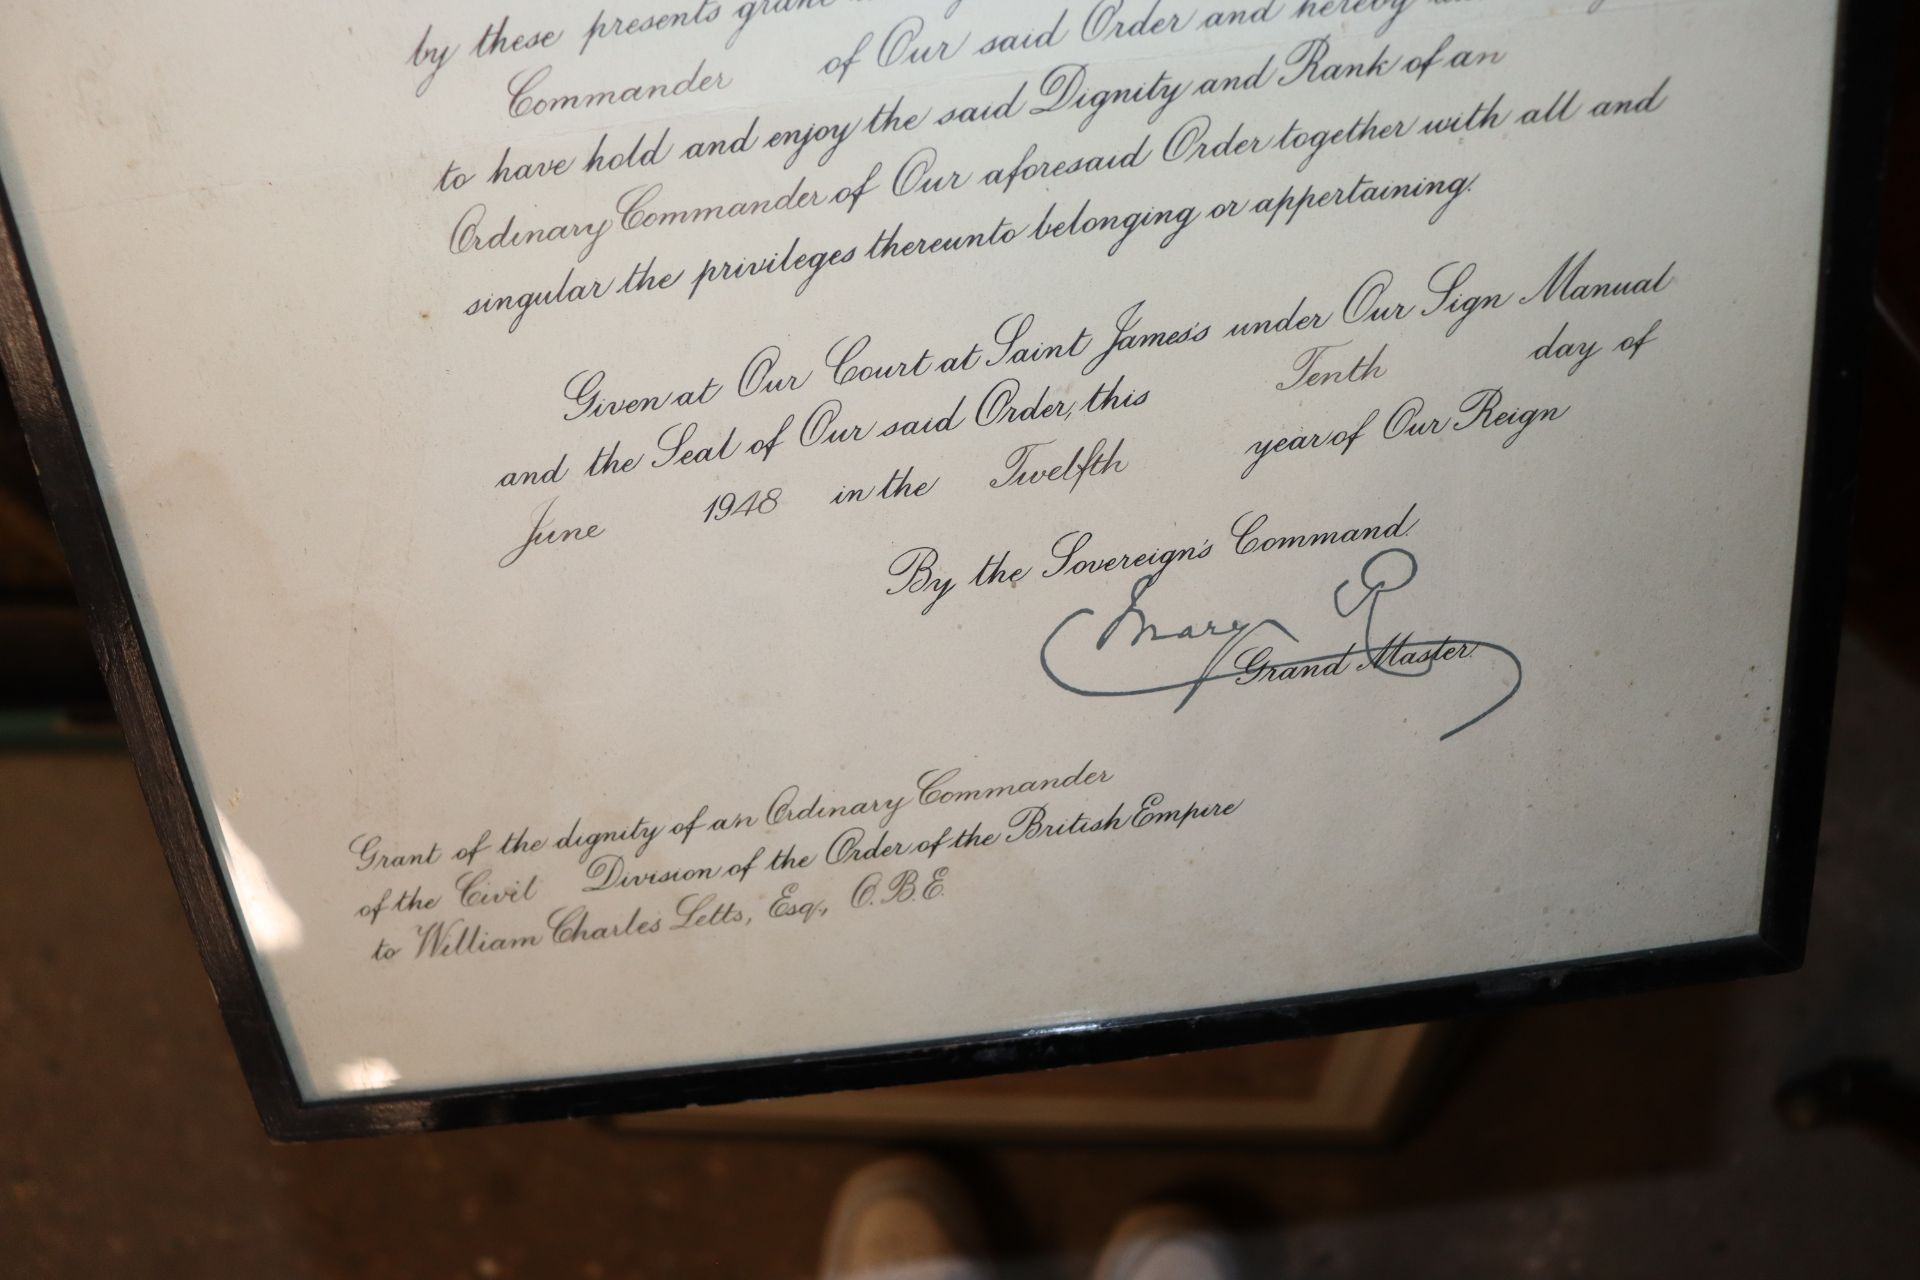 by these presents grant
Commander of Our said Order and hereby
to have hold and enjoy the said Dignity and Rank of an
Ordinary Commander of Our aforesaid Order together with all and
singular the privileges thereunto belonging or appertaining.
Given at Our Court at Saint James's under Our Sign Manual
and the Seal of Our said Order, this Tenth day of
June 1948 in the Twelfth year of Our Reign
By the Sovereign's Command.
Mary R
Grand Master.
Grant of the dignity of an Ordinary Commander
of the Civil Division of the Order of the British Empire
to William Charles Letts, Esq., O.B.E.